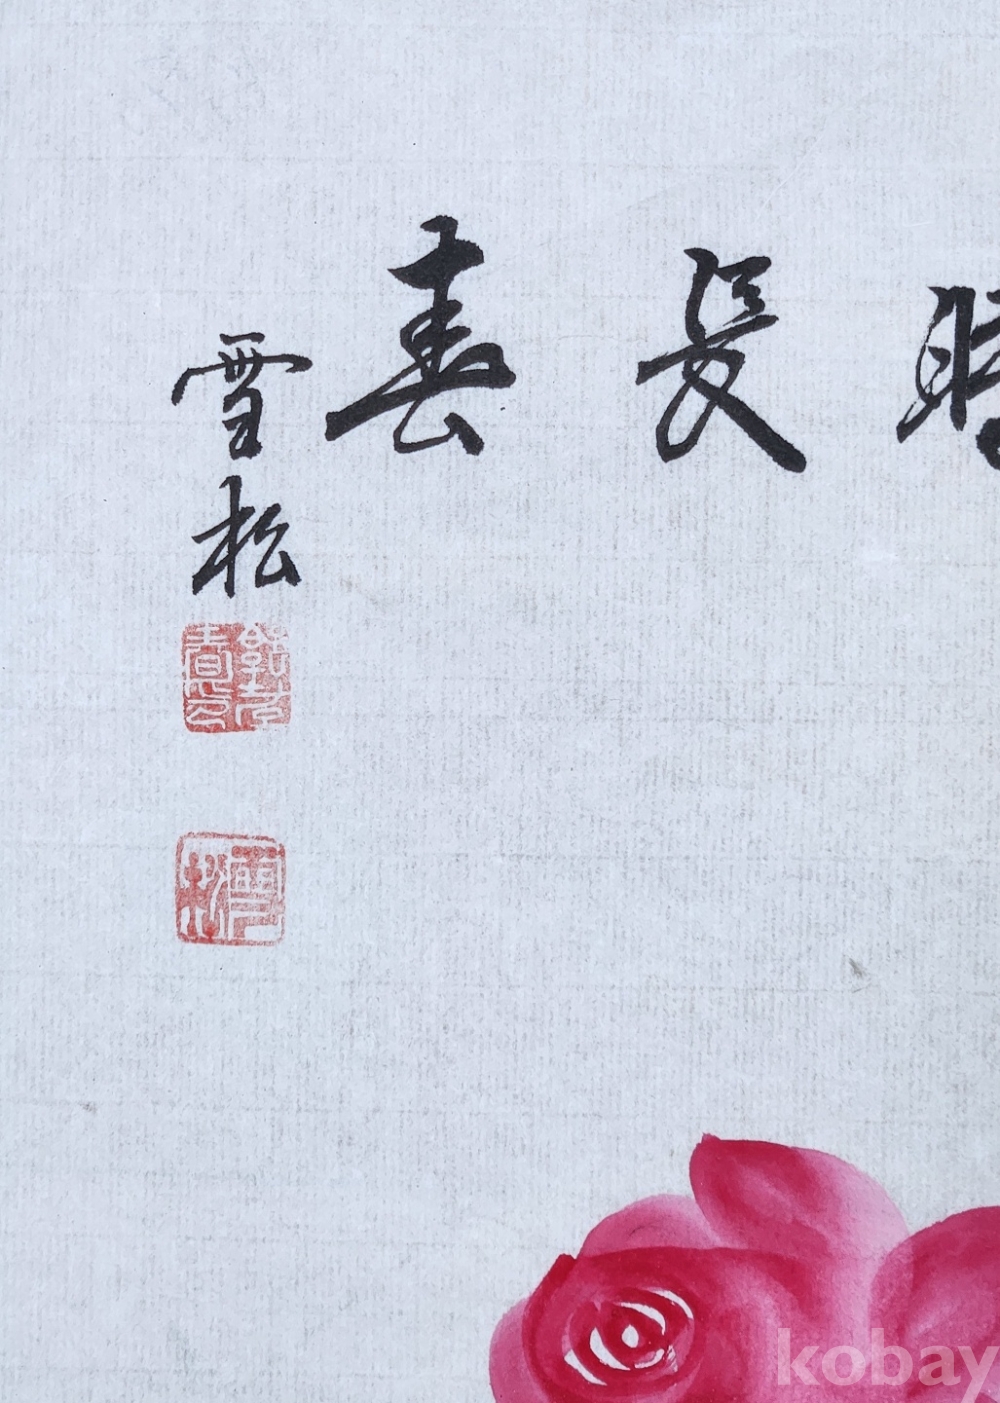 時長春
雪松
雪松
kobay